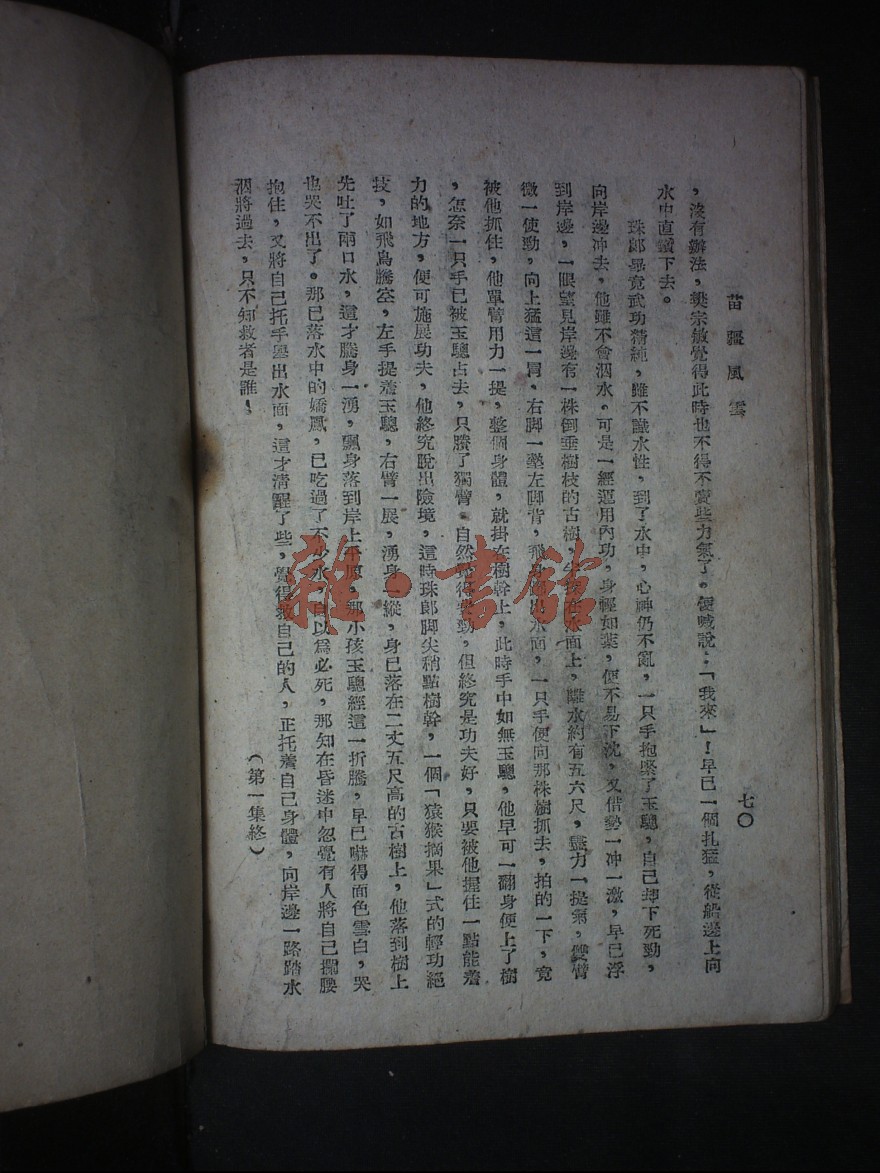 苗疆風雲
七〇
，沒有辦法，樊宗敏覺得此時也不得不賣些力氣了。便喊說：「我來」！早已一個扎猛，從船邊上向
水中直鑽下去。
珠郎畢竟武功精純，雖不識水性，到了水中，心神仍不亂，一只手抱緊了玉驄，自己却下死勁，
向岸邊冲去，他雖不會泅水。可是一經運用內功，身輕如葉，便不易下沈，又借勢一冲一激，早已浮
到岸邊，一眼望見岸邊有一株倒垂樹枝的古樹，水面上，離水約有五六尺，盡力一提氣，雙臂
微一使勁，向上猛這一冒，右脚一墊左脚背，飛身出水面，一只手便向那株樹抓去，拍的一下，竟
被他抓住，他單臂用力一提，整個身體，就掛在樹幹上，此時手中如無玉驄，他早可一翻身便上了樹
，怎奈一只手已被玉驄占去，只賸了獨臂。自然覺得費勁，但終究是功夫好，只要被他握住一點能着
力的地方，便可施展功夫，他終究脫出險境，這時珠郎脚尖稍點樹幹，一個「猿猴摘果」式的輕功絕
技，如飛鳥騰空，左手提着玉驄，右臂一展，湧身一縱，身已落在二丈五尺高的古樹上，他落到樹上
先吐了兩口水，這才騰身一湧，飄身落到岸上平原，那小孩玉驄經這一折騰，早已嚇得面色雪白，哭
也哭不出了。那已落水中的嬌鳳，已吃過了不少水，自以爲必死，那知在昏迷中忽覺有人將自己攔腰
抱住，又將自己托手舉出水面，這才清醒了些，覺得救自己的人，正托着自己身體，向岸邊一路踏水
泅將過去，只不知救者是誰！
（第一集終）
雜·書館